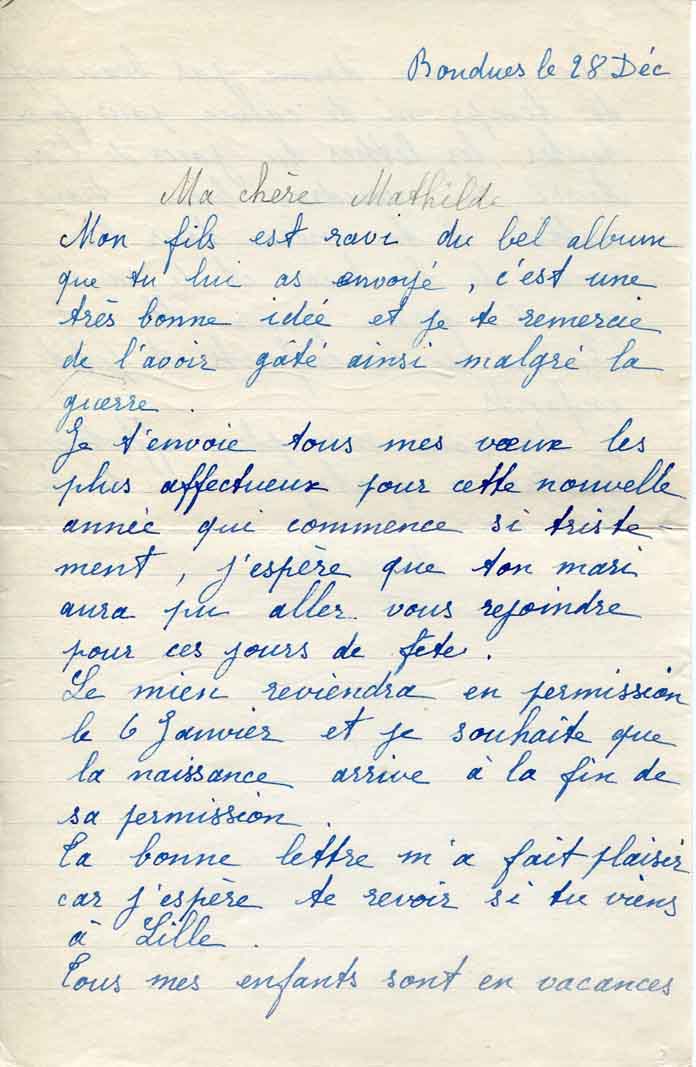 Bondues le 28 Déc
Ma chère Mathilde
Mon fils est ravi du bel album
que tu lui as envoyé, c'est une
très bonne idée et je te remercie
de l'avoir gâté ainsi malgré la
guerre.
Je t'envoie tous mes vœux les
plus affectueux pour cette nouvelle
année qui commence si triste-
ment, j'espère que ton mari
aura pu aller vous rejoindre
pour ces jours de fête.
Le mien reviendra en permission
le 6 Janvier et je souhaite que
la naissance arrive à la fin de
sa permission.
Ta bonne lettre m'a fait plaisir
car j'espère te revoir si tu viens
à Lille.
Tous mes enfants sont en vacances